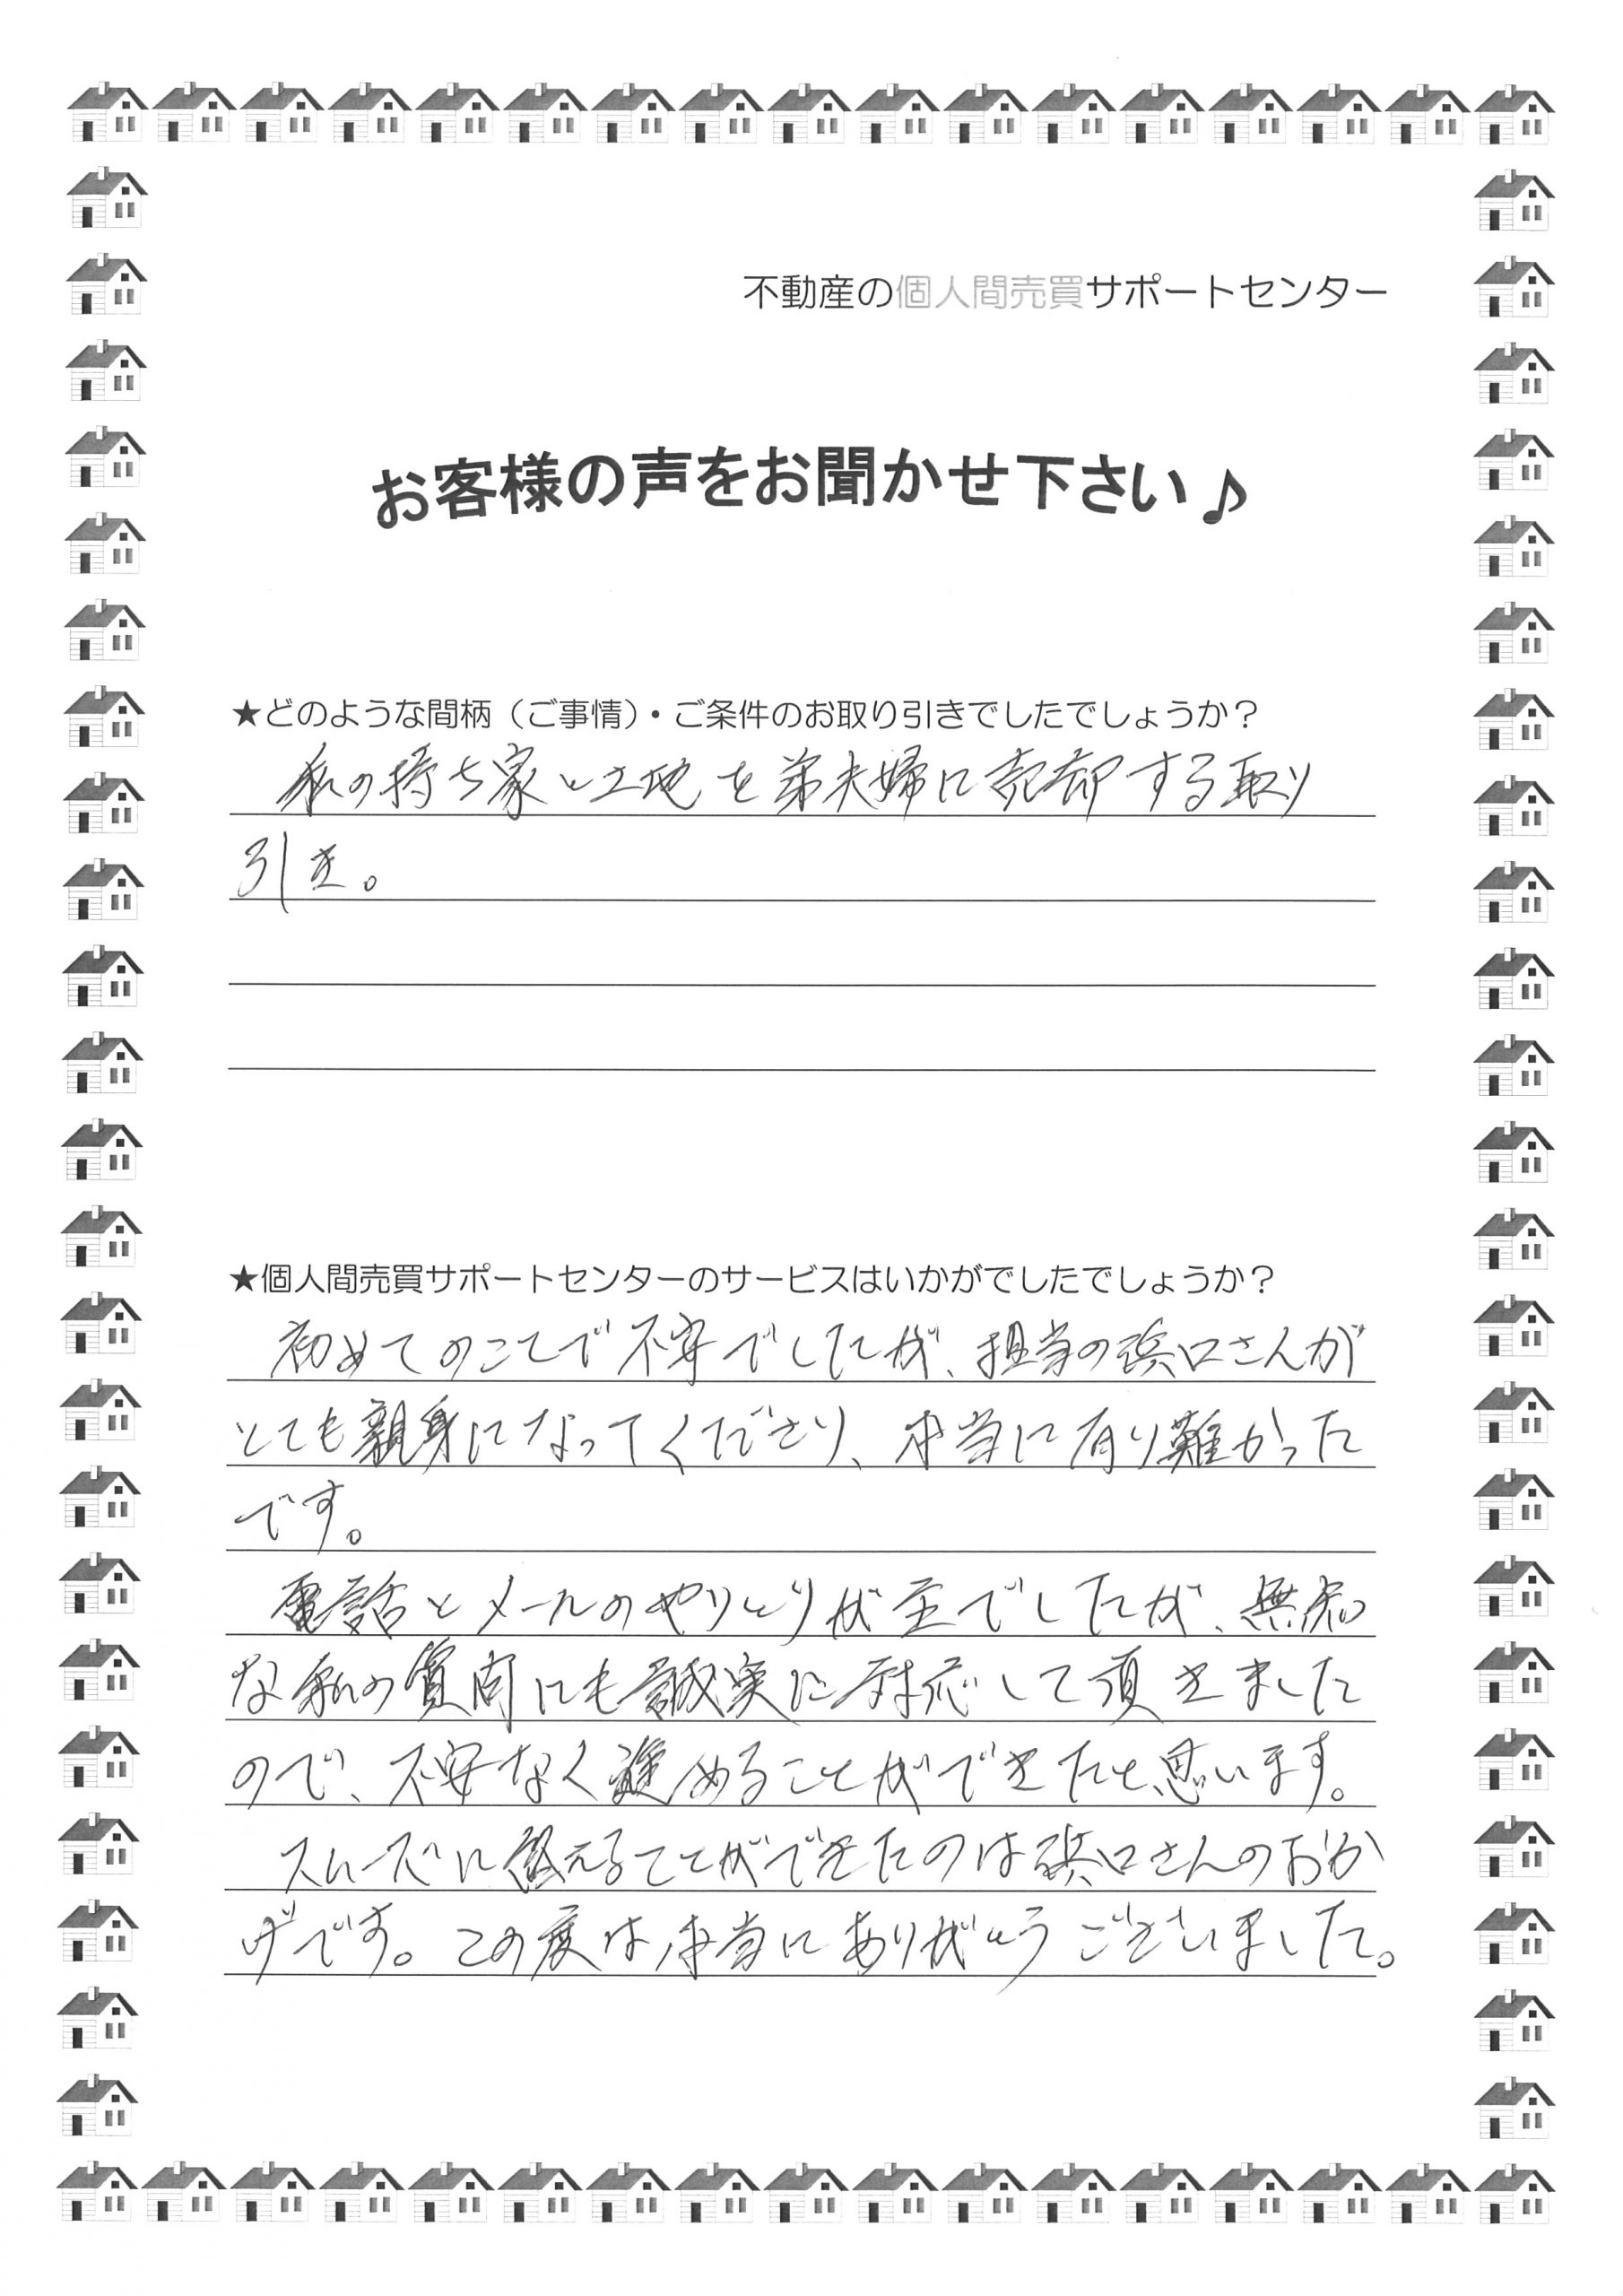 不動産の個人間売買サポートセンター
お客様の声をお聞かせ下さい♪
★どのような間柄（ご事情）・ご条件のお取り引きでしたでしょうか？
私の持ち家と土地を弟夫婦に売却する取り
引き。
★個人間売買サポートセンターのサービスはいかがでしたでしょうか？
初めてのことで不安でしたが、担当の浜口さんが
とても親身になってくださり、本当に有り難かった
です。
電話とメールのやりとりが主でしたが、無知
な私の質問にも誠実に対応して頂きました
ので、不安なく進めることができたと思います。
スムーズに終えることができたのは浜口さんのおか
げです。この度は本当にありがとうございました。